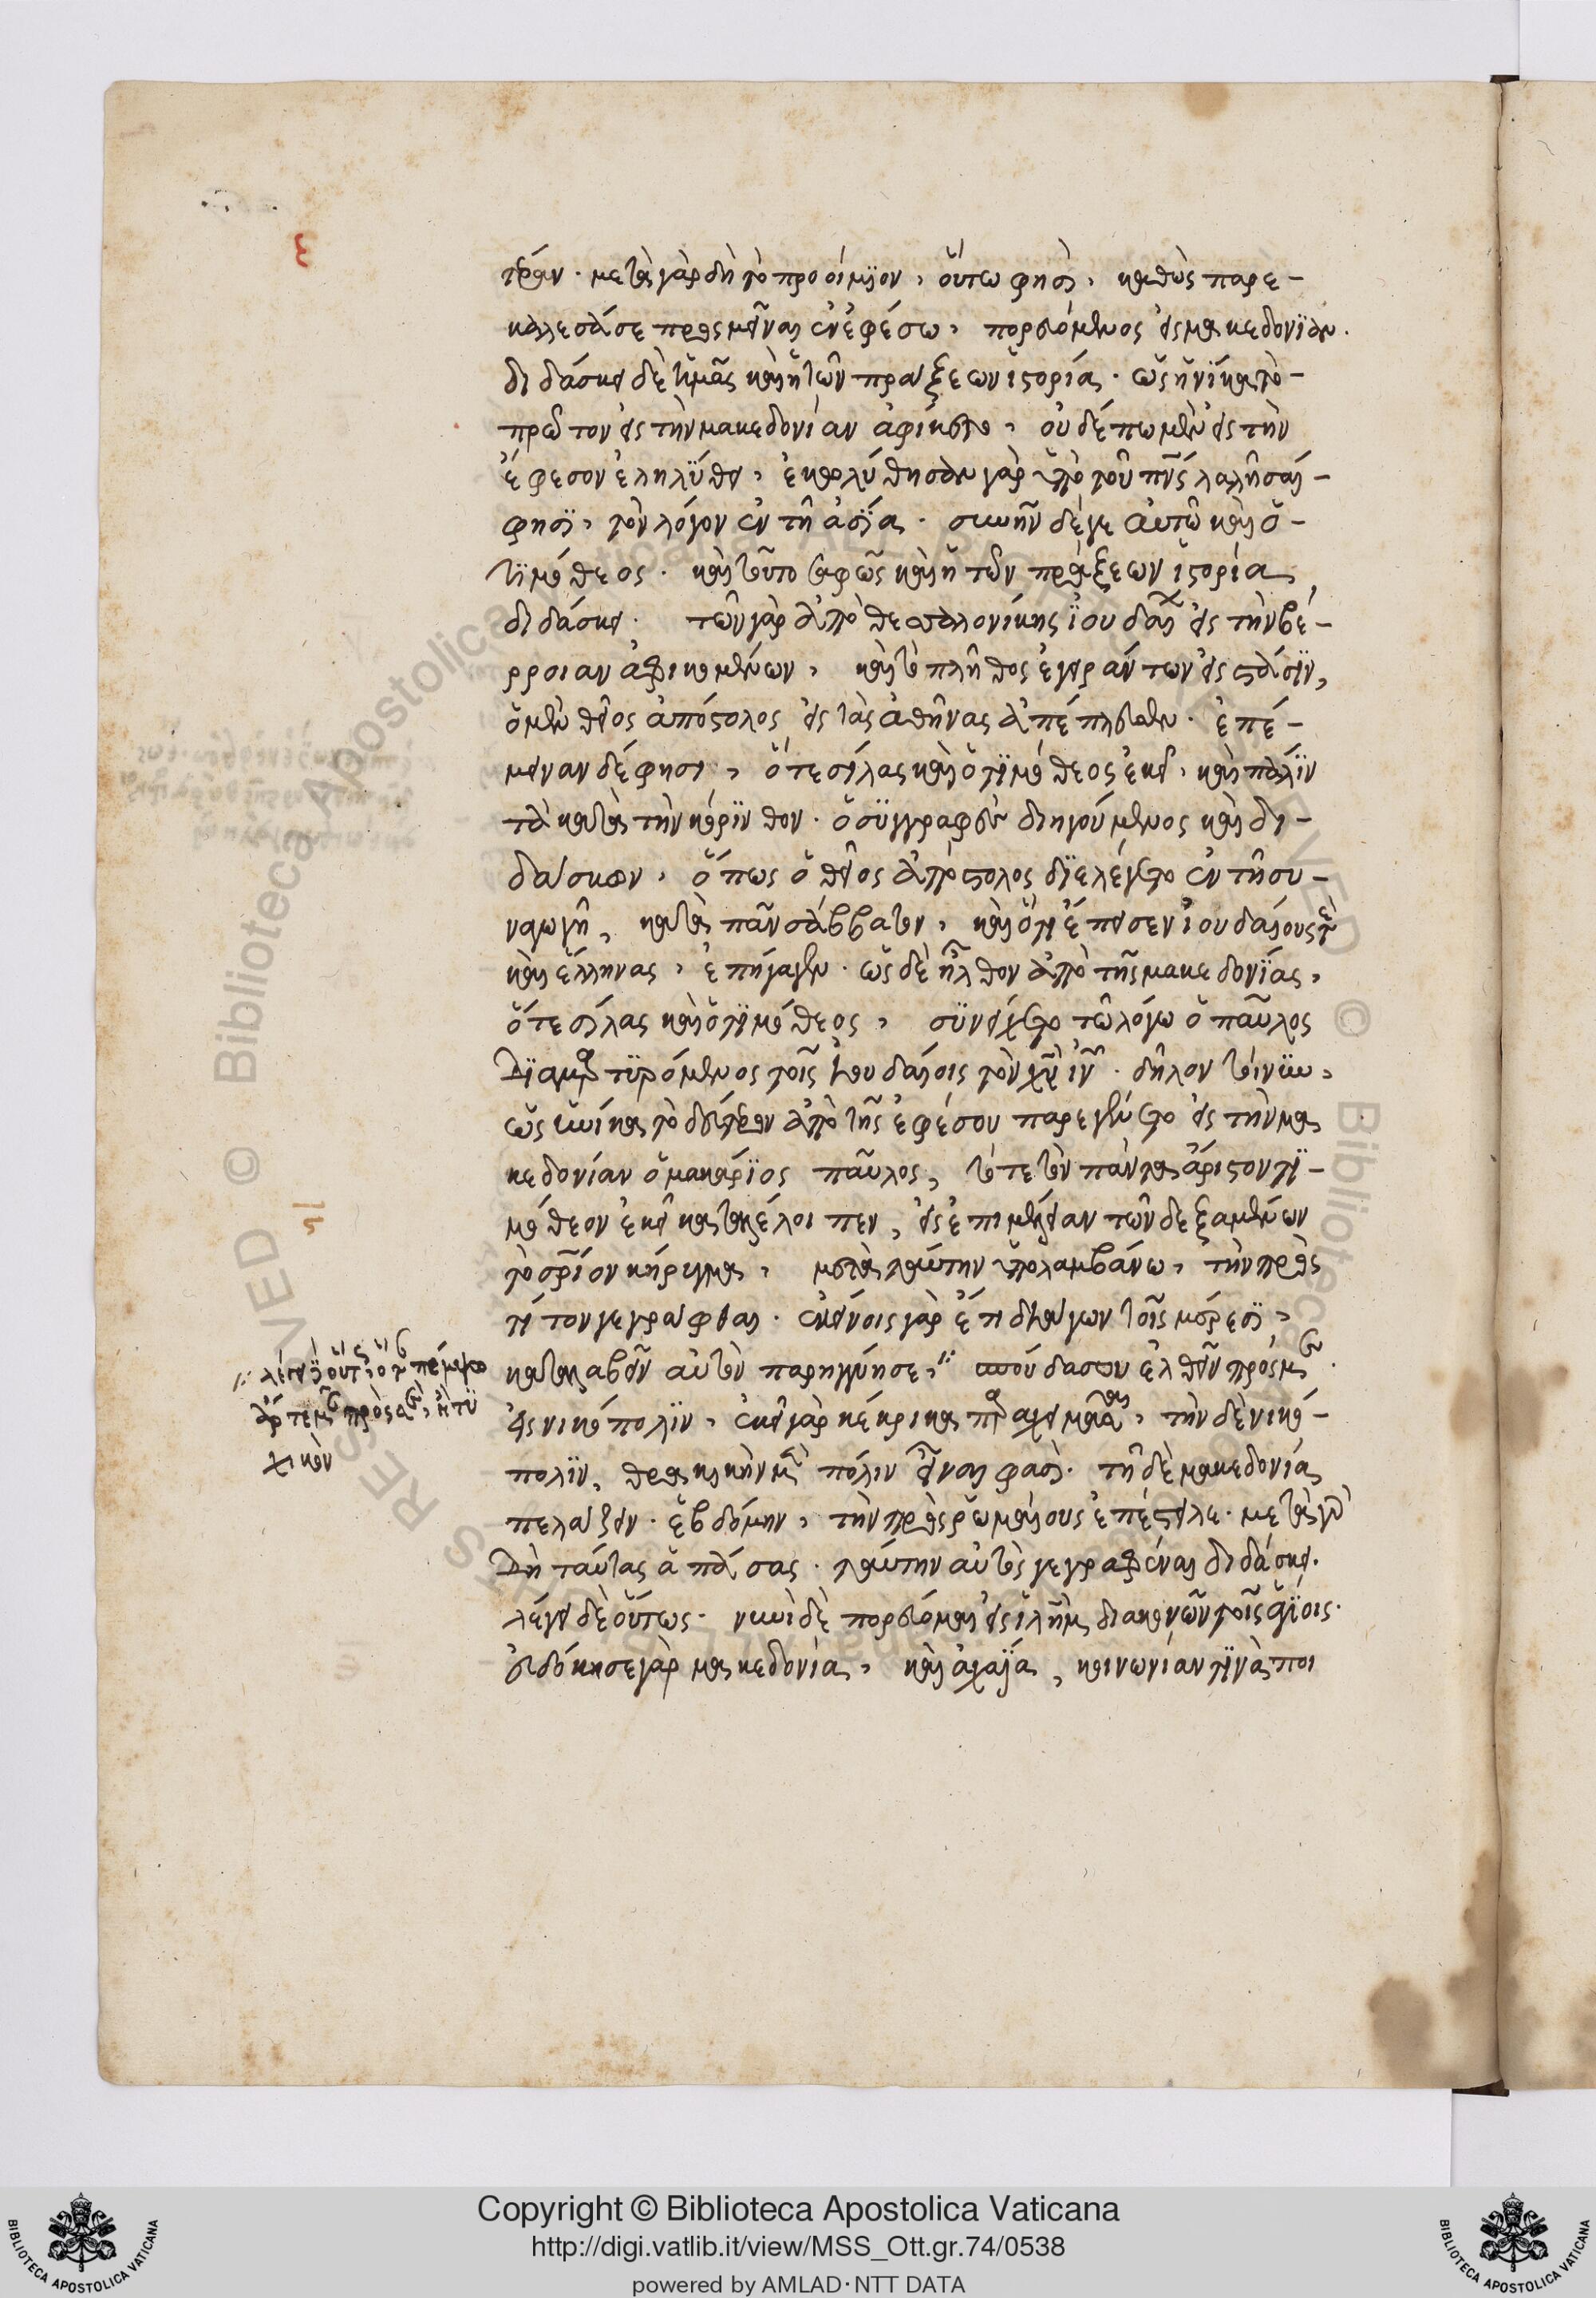 τέραν· μετὰ γὰρ δὴ τὸ προοίμϊον, οὕτω φησὶ, καθὼς παρε-
κάλεσά σε προσμεῖναι ἐν ἐφέσω, πορευόμενος εἰς μακεδονΐαν.
διδάσκει δὲ ἡμᾶς καὶ ἡ τῶν πράξεων ἱστορία· ὡς ἡνΐκα τὸ-
πρῶτον εἰς τὴν μακεδονίαν ἀφίκετο, οὐδέπω μὲν εἰς τὴν
ἔφεσον ἐληλΰθει, ἐκωλύθησαν γὰρ ὑπὸ τοῦ πνς λαλῆσαι-
φησΐ, τὸν λόγον ἐν τῆ ἀσΐα· συνῆν δέγε αὐτῶ καὶ ὁ-
τϊμόθεος· καὶ τοῦτο σαφῶς καὶ ἡ τῶν πράξεων ἱστορία
διδάσκει· τῶν γὰρ ἀπὸ θεσσαλονίκης ϊουδαίων εἰς τὴν βέ-
ρροιαν ἀφικομένων, καὶ τὸ πλῆθος ἐγειράντων εἰς στάσϊν,
ὁ μὲν θεῖος ἀπόστολος εἰς τὰς ἀθήνας ἀπέπλευσεν· ἐπέ-
μειναν δέ φησι, ὅ τε σίλας καὶ ὁ τϊμόθεος ἐκεῖ, καὶ πάλϊν
τὰ κατὰ τὴν κόρϊνθον· ὁ σϋγγραφεὺς διηγούμενος καὶ δι-
δάσκων, ὅπως ὁ θεῖος ἀπόστολος δϊελέγετο ἐν τῆ συ-
ναγωγῆ, κατὰ πᾶν σάββατον, καὶ ὅτι ἔπεισεν ἰουδαίους τὲ
καὶ ἕλληνας, ἐπήγαγεν· ὡς δὲ ἦλθον ἀπὸ τῆς μακεδονΐας,
ὅ τε σίλας καὶ ὁ τϊμόθεος, σϋνείχετο τῶ λόγω ὁ παῦλος
Δϊαμαρτϋρόμενος τοῖς ἰουδαίοις τὸν χν ιν· δῆλον τοίνϋν,
ὡς ἡνίκα τὸ δεύτερον ἀπὸ τῆς ἐφέσου παρεγένετο εἰς τὴν μα
κεδονίαν ὁ μακάρϊος παῦλος, τότε τὸν πάντα ἄριστον τϊ-
μόθεον ἐκεῖ καταλέλοιπεν, εἰς ἐπιμέλειαν τῶν δεξαμένων
τὸ σριον κήρυγμα, μετὰ ταύτην ὑπολαμβάνω, τὴν πρὸς
τίτον γεγράφθαι· ἐκείνοις γὰρ ἔτι διάγων τοῖς μέρεσϊ,
καταλαβεῖν αὐτὸν παρηγγύησε, σπούδασον ἐλθεῖν πρός με·
εἰς νικόπολϊν, ἐκεῖ γὰρ κέκρικα παραχειμάσαι, τὴν δὲ νικό-
πολϊν, θρακικὴν μὲν πόλιν εἶναι φασὶ· τῆ δὲ μακεδονία
πελάζειν· ἑβδόμην, τὴν πρὸς ῥωμαίους ἐπέστειλε· μετὰ γὰρ
Δὴ ταύτας ἁπάσας· ταύτην αὐτὸς γεγραφέναι διδάσκει.
λέγει δὲ οὕτως· νυνὶ δὲ πορεύομαι εἰς ϊλὴμ διακονῶν τοῖς ἁγΐοις·
εὐδόκησε γὰρ μακεδονία, καὶ ἀχαΐα, κοινωνίαν τϊνὰ ποι
λέγει οὕτ ὅταν πέμψω
ἀρτεμᾶν πρὸς σε, ἢ τϋ
χικὸν